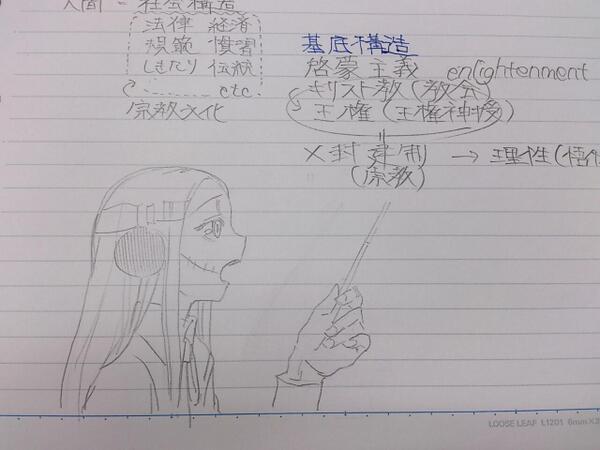 人間 - 社会構造
法律 経済
規範 慣習
しきたり 伝統
etc.
宗教文化
基底構造
啓蒙主義 enlightenment
キリスト教 (教会)
王権 (王権神授)
×封建制 → 理性(悟性
(宗教)
LOOSE LEAF L1201 6mm×3